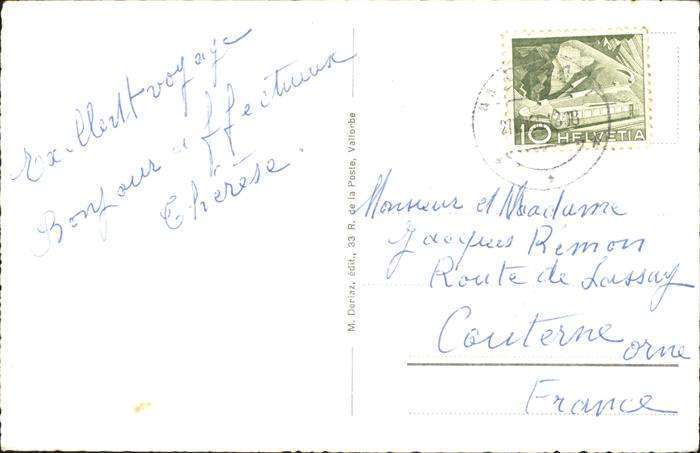 Excellent voyage
Bonjour affectueux
Thérèse.
M. Deriaz, édit., 33 R. de la Poste, Vallorbe
10 HELVETIA
Monsieur et Madame
Jacques Rémon
Route de Lassay
Couterne
orne
France